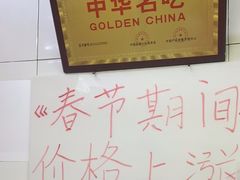 中华名吃
GOLDEN CHINA
《春节期间
价格上涨